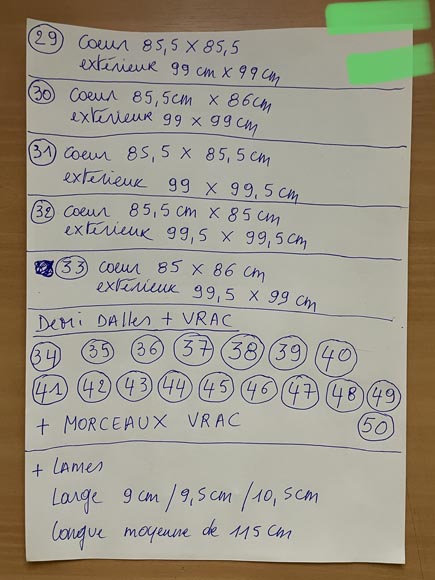 29 Coeur 85,5 x 85,5
extérieur 99 cm x 99 cm
30 Coeur 85,5 cm x 86 cm
extérieur 99 x 99 cm
31 Coeur 85,5 x 85,5 cm
extérieur 99 x 99,5 cm
32 Coeur 85,5 cm x 85 cm
extérieur 99,5 x 99,5 cm
33 Coeur 85 x 86 cm
extérieur 99,5 x 99 cm
Demi DALLES + VRAC
34 35 36 37 38 39 40
41 42 43 44 45 46 47 48 49
+ MORCEAUX VRAC 50
+ LAMES
Large 9 cm / 9,5 cm / 10,5 cm
Longue moyenne de 115 cm